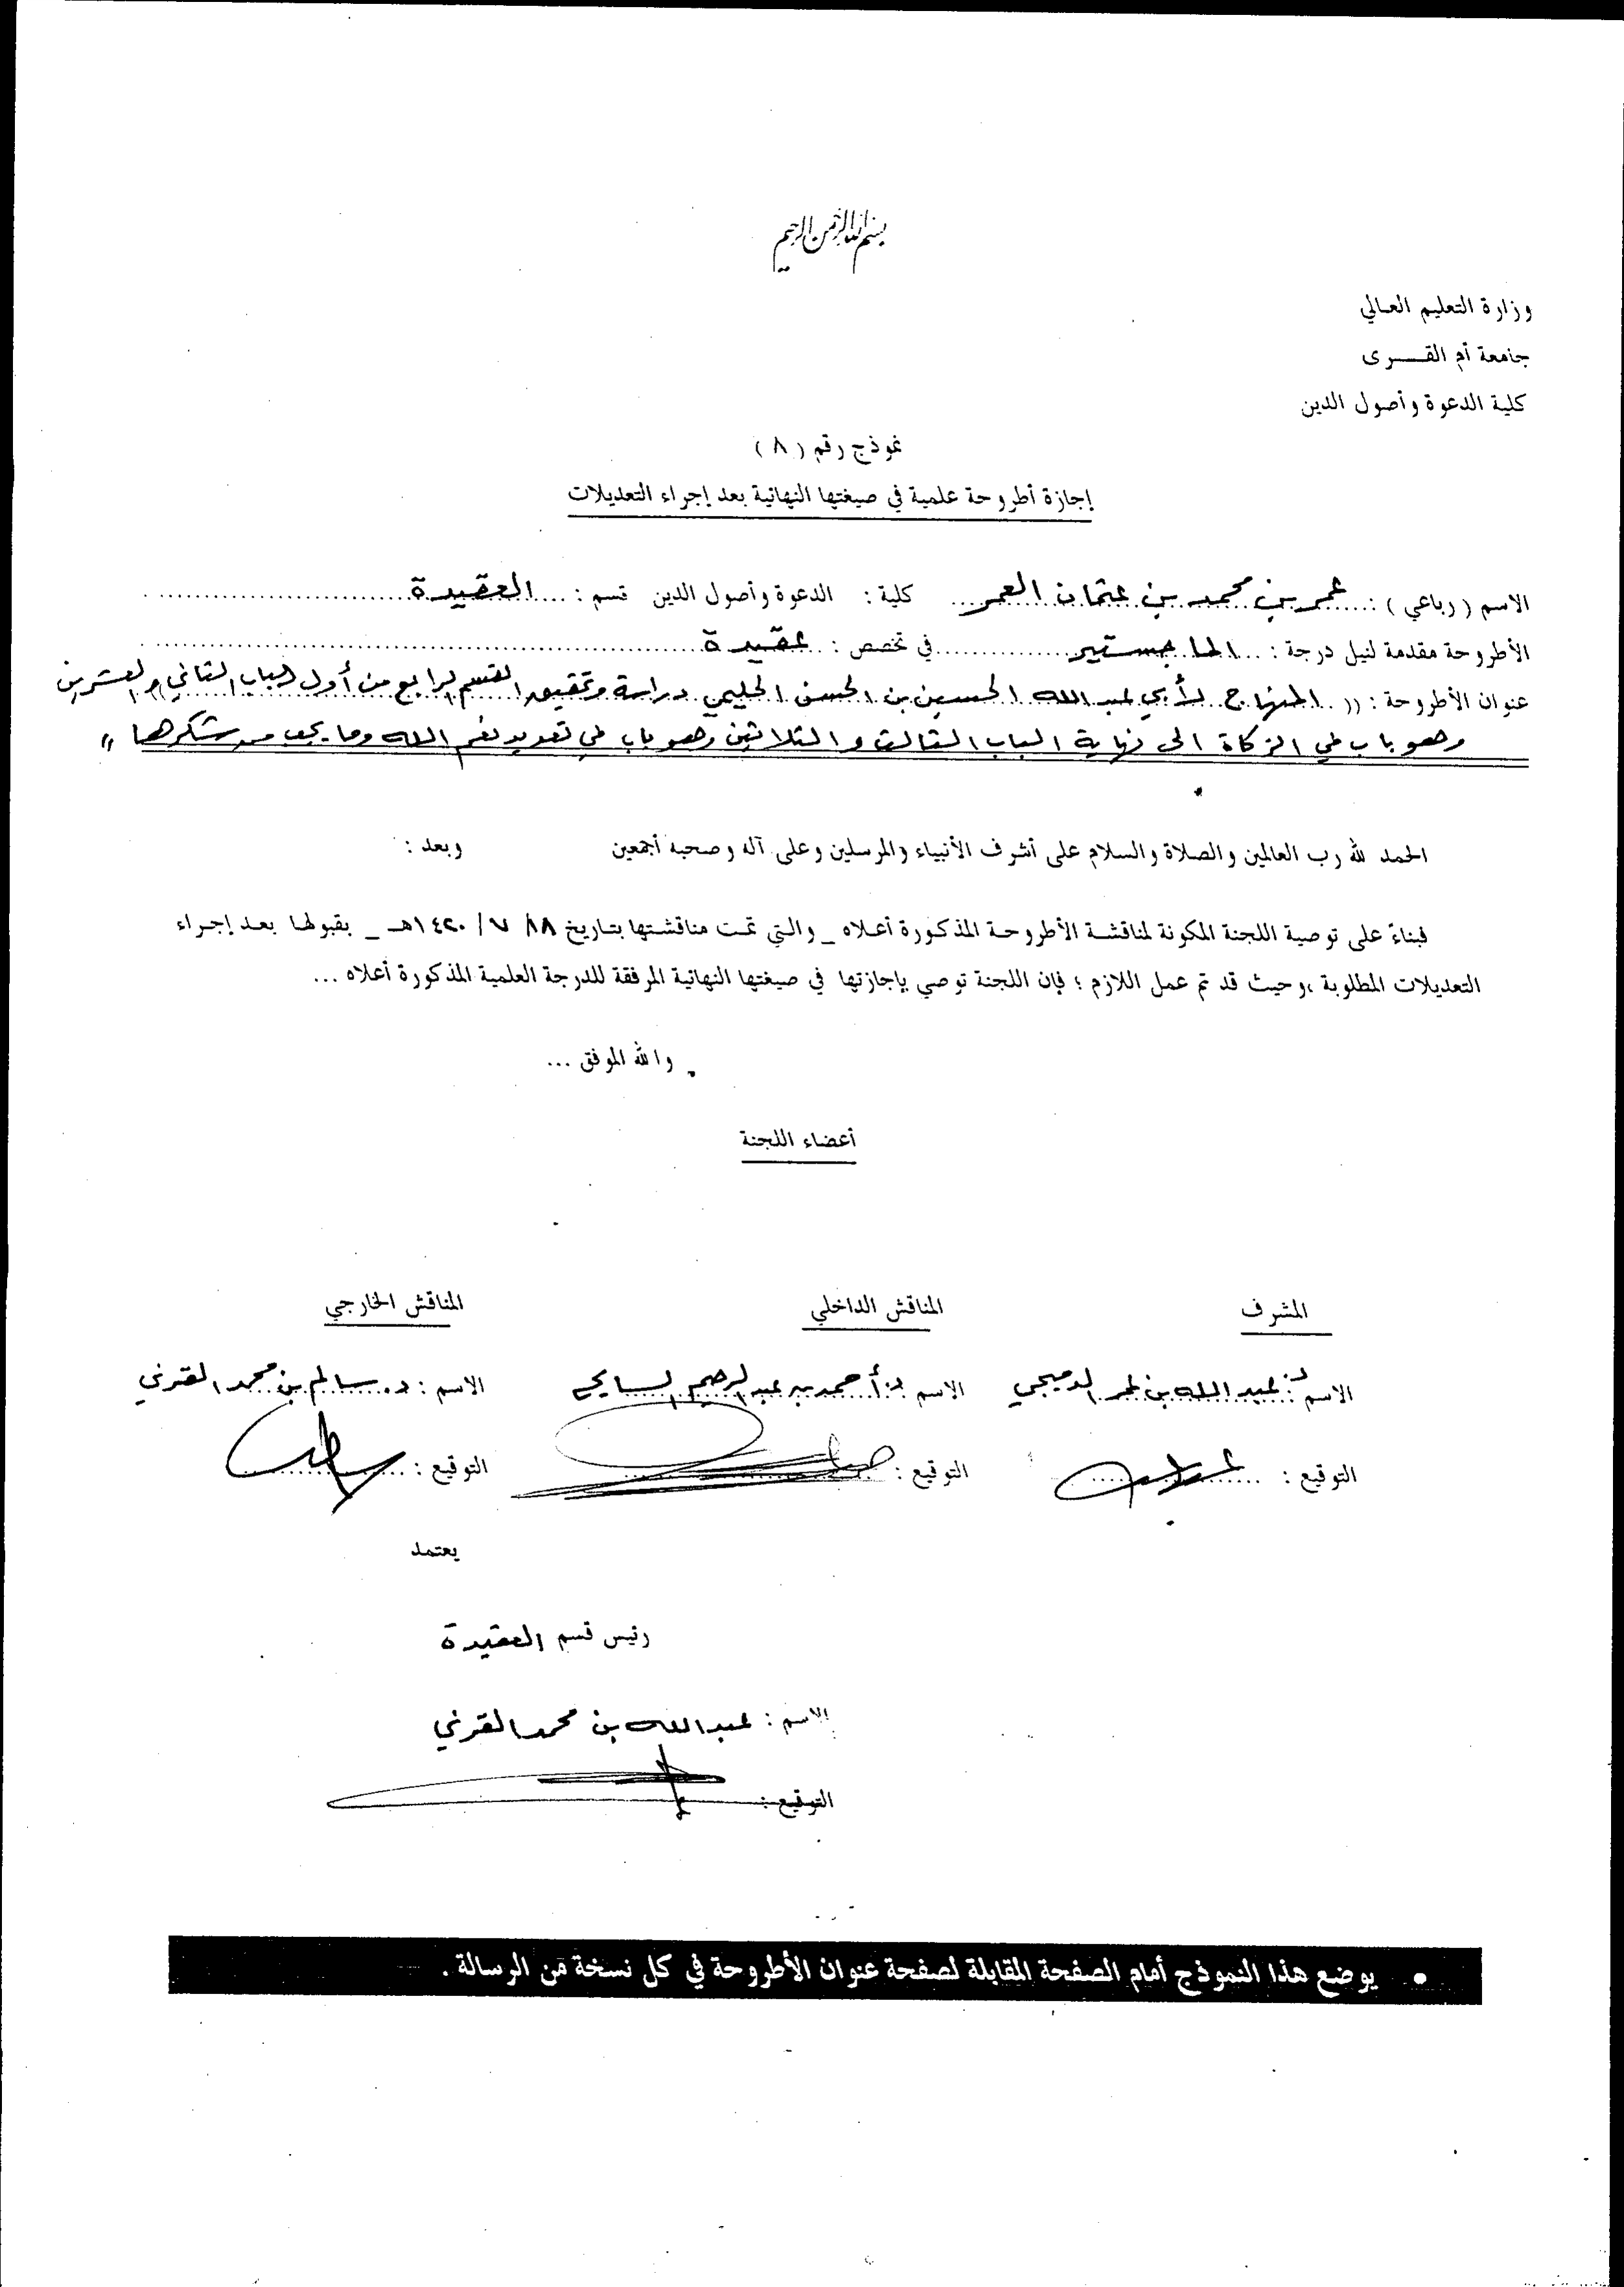 بسم الله الرحمن الرحيم
وزارة التعليم العالي
جامعة أم القـــرى
كلية الدعوة وأصول الدين
نموذج رقم ( ٨ )
إجازة أطروحة علمية في صيغتها النهائية بعد إجراء التعديلات
الاسم ( رباعي ) : عمر بن محمد بن عثمان العمر كلية : الدعوة وأصول الدين قسم : العقيدة
الأطروحة مقدمة لنيل درجة : الماجستير في تخصص : عقيدة
عنوان الأطروحة : (( المنهاج لأبي عبد الله الحسين بن الحسن الحليمي دراسة وتحقيق القسم الرابع من أول الباب الثاني والعشرين
وهو باب في الزكاة الى نهاية الباب الثالث والثلاثين وهو باب في تعديد نعم الله وما يجب من شكرها ))
الحمد لله رب العالمين والصلاة والسلام على أشرف الأنبياء والمرسلين وعلى آله وصحبه أجمعين وبعد :
فبناءً على توصية اللجنة المكونة لمناقشة الأطروحة المذكورة أعلاه _ والتي تمت مناقشتها بتاريخ ١٨/ ٧ / ١٤٢٠هـ _ بقبولها بعد إجراء
التعديلات المطلوبة ،وحيث قد تم عمل اللازم ؛ فإن اللجنة توصي بإجازتها في صيغتها النهائية المرفقة للدرجة العلمية المذكورة أعلاه ...
والله الموفق ...
أعضاء اللجنة
المشرف المناقش الداخلي المناقش الخارجي
الاسم : د. عبد الله بن عمر الدميجي الاسم : د. أحمد بن عبد الرحيم السايح الاسم : د. سالم بن محمد القرني
التوقيع : التوقيع : التوقيع :
يعتمد
رئيس قسم العقيدة
الاسم : عبد الله بن محمد القرني
التوقيع :
• يوضع هذا النموذج أمام الصفحة المقابلة لصفحة عنوان الأطروحة في كل نسخة من الرسالة .